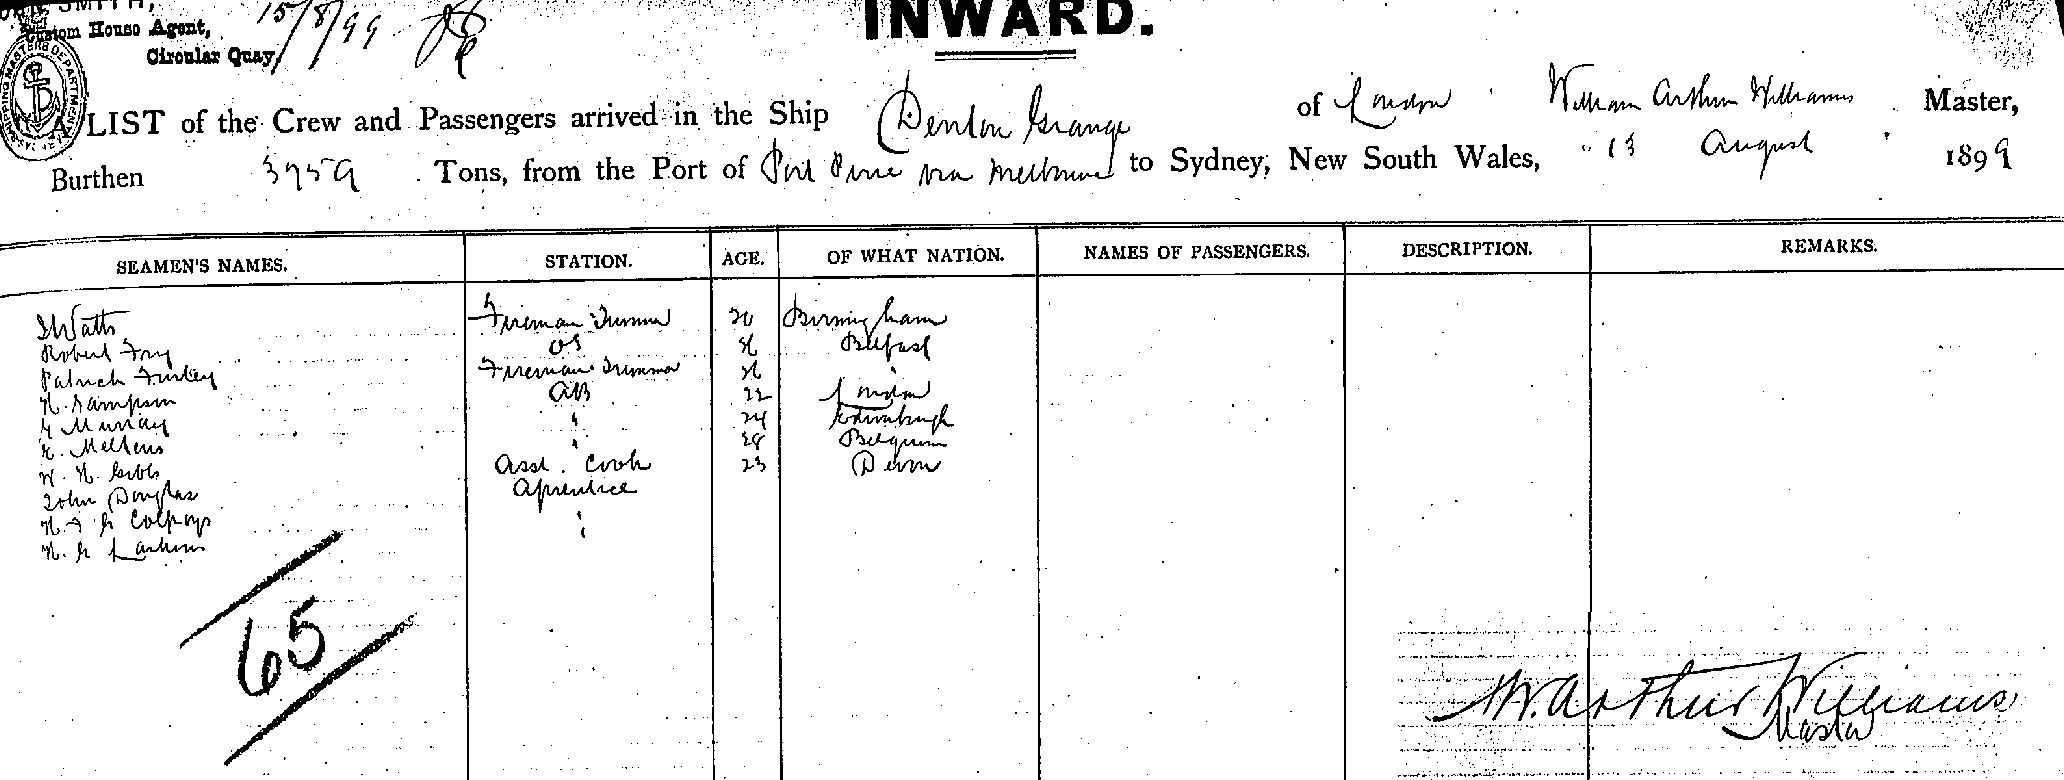 SMITH,
Custom House Agent,
Circular Quay
15/8/99
INWARD.
SHIPPING MASTERS DEPARTMENT
A LIST of the Crew and Passengers arrived in the Ship Denton Grange of London William Arthur Williams Master,
Burthen 3759 Tons, from the Port of Port Pirie via Melbourne to Sydney, New South Wales, 13 August 1899
SEAMEN'S NAMES. STATION. AGE. OF WHAT NATION. NAMES OF PASSENGERS. DESCRIPTION. REMARKS.
Watts Fireman Trimmer Birmingham
Robert Fry OS Belfast
Patrick Fireman Trimmer "
H. Sampson AB 22 London
G Murray " 24 Edinburgh
" 28 Belgium
W. H. Gibbs Asst. Cook 23 Devon
John Douglas Aprentice
"
"
65
W. Arthur Williams
Master